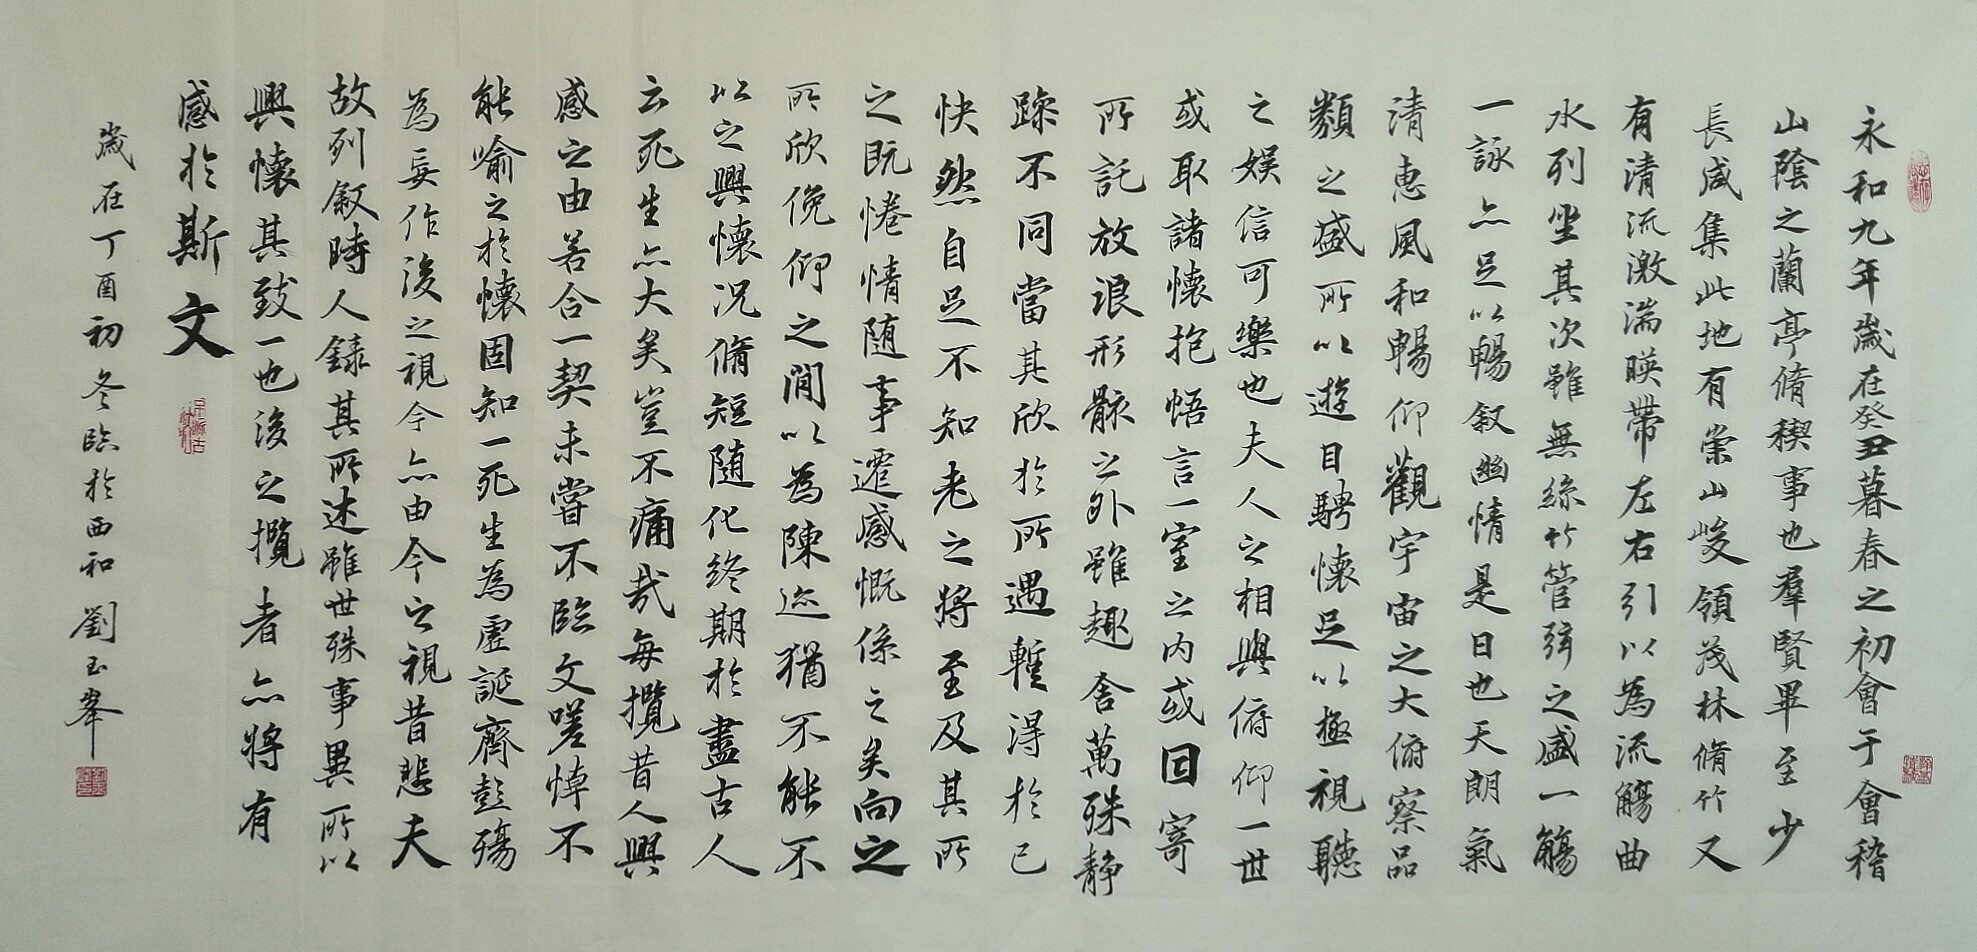 永和九年歲在癸丑暮春之初會于會稽
山陰之蘭亭脩稧事也羣賢畢至少
長咸集此地有崇山峻領茂林脩竹又
有清流激湍暎帶左右引以為流觴曲
水列坐其次雖無絲竹管弦之盛一觴
一詠亦足以暢叙幽情是日也天朗氣
清惠風和暢仰觀宇宙之大俯察品
類之盛所以遊目騁懷足以極視聽
之娛信可樂也夫人之相與俯仰一世
或取諸懷抱悟言一室之内或因寄
所託放浪形骸之外雖趣舍萬殊静
躁不同當其欣於所遇蹔得於己
快然自足不知老之將至及其所
之既惓情随事遷感慨係之矣向之
所欣俛仰之閒以為陳迹猶不能不
以之興懷況脩短随化終期於盡古人
云死生亦大矣豈不痛哉每攬昔人興
感之由若合一契未嘗不臨文嗟悼不
能喻之於懷固知一死生為虛誕齊彭殤
為妄作後之視今亦由今之視昔悲夫
故列叙時人錄其所述雖世殊事異所以
興懷其致一也後之攬者亦將有
感於斯文
歲在丁酉初冬臨於西和 劉玉峯